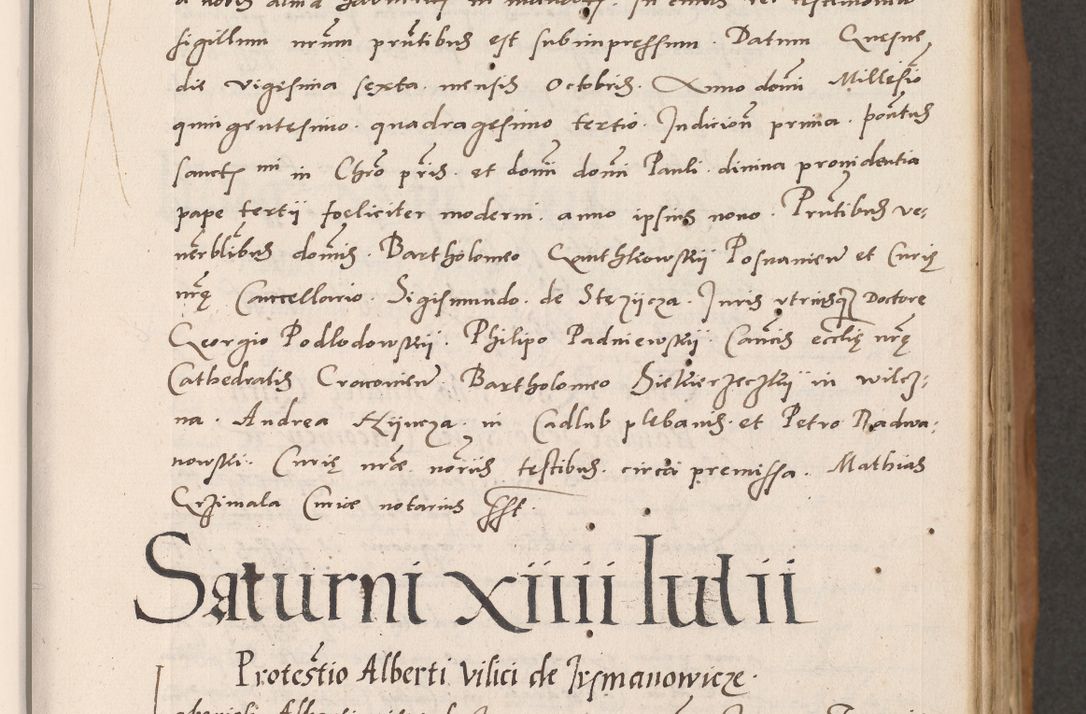 sigillum nrũm prñtibus est subimpressum. Datum Quesne
die vigesima sexta. mensis Octobris. Anno domĩ Millesĩo
quingentesimo. quadragesimo tertio. Indicioñ prima. pontus
sancti mi in Chro pris. et domĩ domĩ Pauli. divina providentia
pape tertii foeliciter moderni. anno ipsius nono. Prñtibus ve-
nerblibus domis. Bartholomeo Posnanien et Curię
nrę Cancellario. Sigismundo. de Stezijcza. Iuris utriusq Doctore
Georgio Podlodowskij. Philipo Padniewskij. Canćis ecclię nrę
Cathedralis Cracovien Bartholomeo in wilcz-
na. Andrea in Cadlub plebanis. et Petro Radwa-
nowski. Curię nræ noriis testibus. circa premissa. Mathias
Crzimala Curiæ notarius sst.
Saturni xiiii Iulii
Protestio Alberti Vilici de Irzmanowicze.